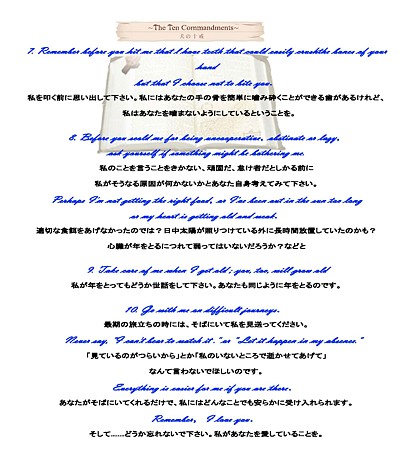 ~The Ten Commandments~
犬の十戒
7. Remember before you hit me that I have teeth that could easily crushthe bones of your
hand
but that I choose not to bite you.
私を叩く前に思い出して下さい。私にはあなたの手の骨を簡単に噛み砕くことができる歯があるけれど、
私はあなたを噛まないようにしているということを。
8. Before you scold me for being uncooperative, obstinate or lazy,
ask yourself if something might be bothering me.
私のことを言うことをきかない、頑固だ、怠け者だとしかる前に
私がそうなる原因が何かないかとあなた自身考えてみて下さい。
Perhaps I'm not getting the right food, or I've been out in the sun too long
or my heart is getting old and weak.
適切な食餌をあげなかったのでは？日中太陽が照りつけている外に長時間放置していたのかも？
心臓が年をとるにつれて弱ってはいないだろうか？などと
9. Take care of me when I get old ; you, too, will grow old
私が年をとってもどうか世話をして下さい。あなたも同じように年をとるのです。
10. Go with me on difficult journeys.
最期の旅立ちの時には、そばにいて私を見送ってください。
Never say, "I can't bear to watch it ." or "Let it happen in my absence."
「見ているのがつらいから」とか「私のいないところで逝かせてあげて」
なんて言わないでほしいのです。
Everything is easier for me if you are there.
あなたがそばにいてくれるだけで、私にはどんなことでも安らかに受け入れられます。
Remember, I love you.
そして......どうか忘れないで下さい。私があなたを愛していることを。